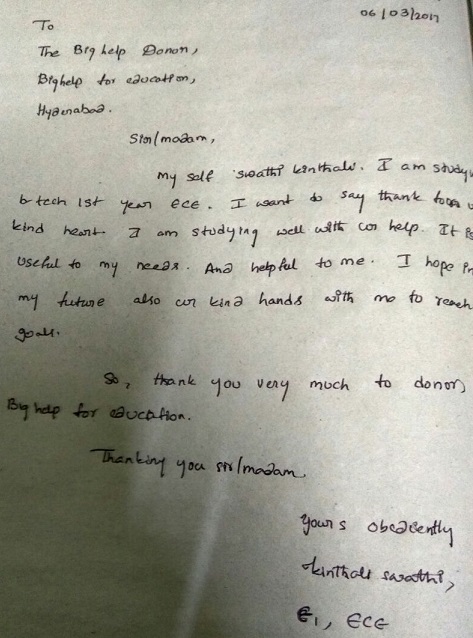 06/03/2017
To
The Big help Donor,
Bighelp for education,
Hyderabad.
Sir/madam,
my self swathi kinthali. I am study
b-tech 1st year ECE. I want to say thank for u
kind heart I am studying well with ur help. It is
useful to my needs. And helpful to me. I hope in
my future also ur kind hands with me to reach
goals.
So, thank you very much to donor,
Big help for education.
Thanking you sir/madam
yours obediently
kinthali swathi,
E1, ECE